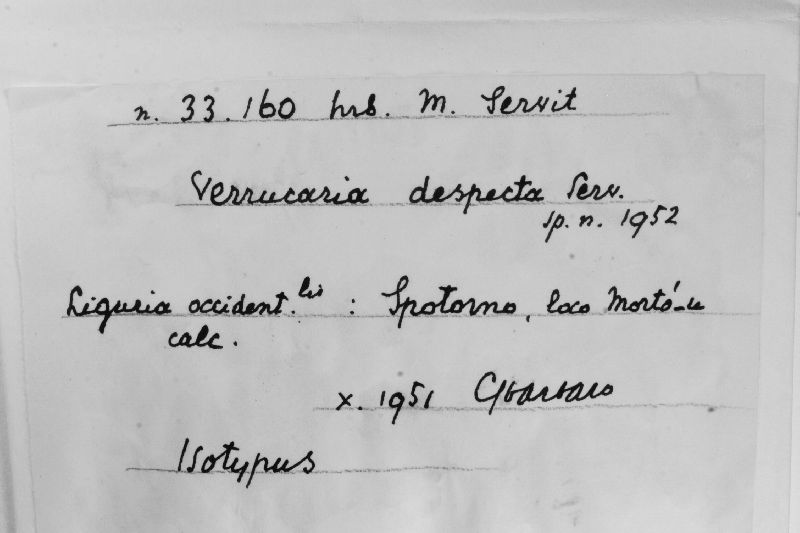 n. 33.160 hrb. M. Servít
Verrucaria despecta Serv.
sp. n. 1952
Liguria occident.lis : Spotorno, loco Mortó-u
calc.
x. 1951 CSbarbaro
Isotypus